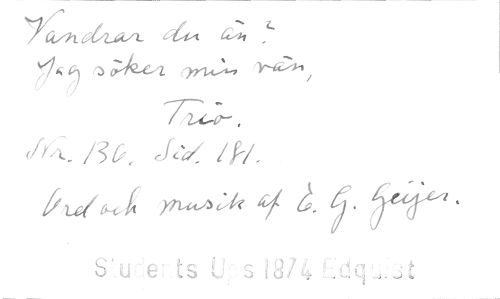 Vandrar du än?
Jag söker min vän,
Trio.
Nr. 136. Sid. 181.
Ord och musik af E. G. Geijer.
Students Ups 1874 Edquist